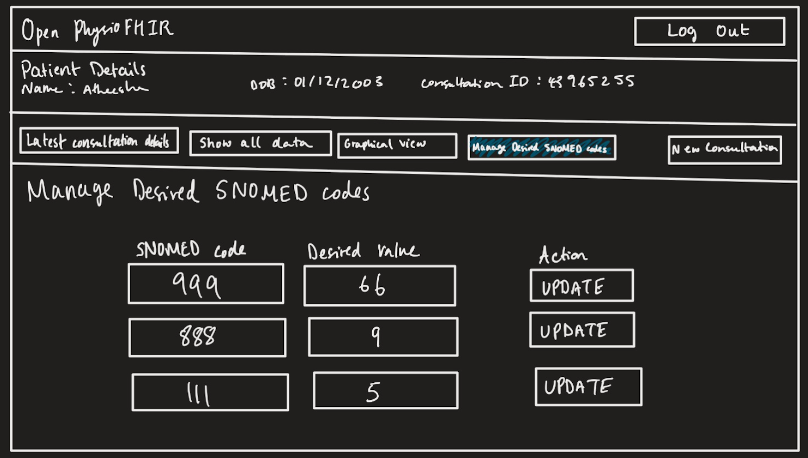 Open PhysioFHIR
Log Out
Patient Details
Name : Atheesha
DOB : 01/12/2003
Consultation ID : 43965255
Latest consultation details
Show all data
Graphical view
Manage Desired SNOMED codes
New Consultation
Manage Desired SNOMED codes
SNOMED code
Desired value
Action
999
66
UPDATE
888
9
UPDATE
111
5
UPDATE